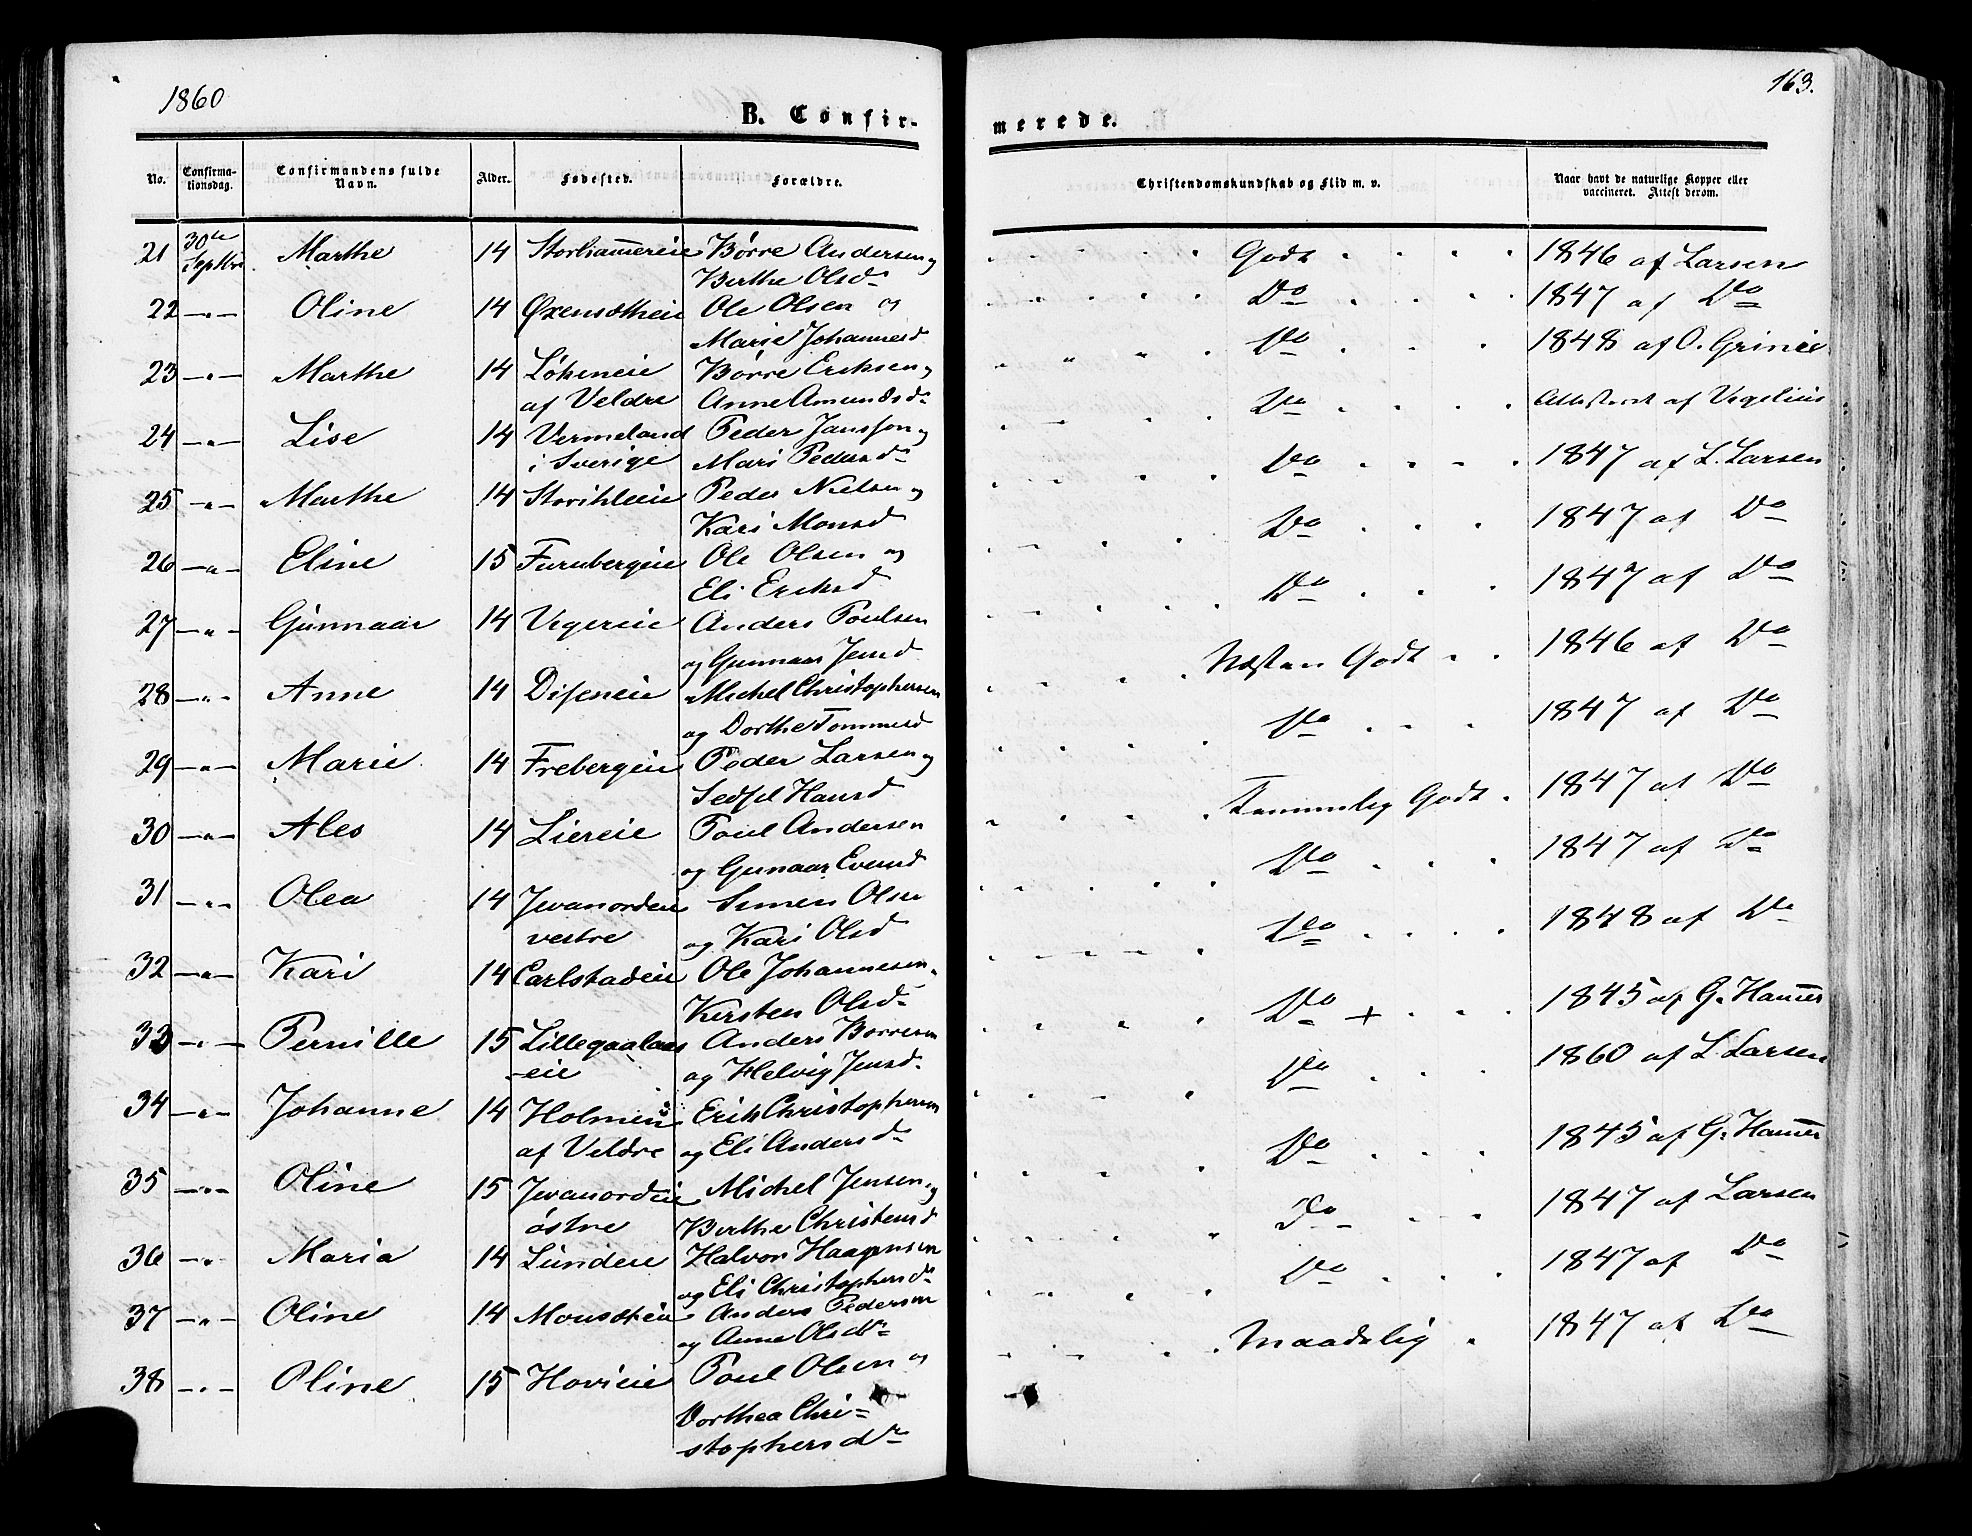 1860
163.
B. Confir-
merede.
No.
Confirma-
tionsdag.
Confirmandens fulde
Navn.
Alder.
Fødested.
Forældre.
Christendomskundskab og Flid m. v.
Naar havt de naturlige Kopper eller
vaccineret. Attest derom.
21 30te Septbr. Marthe 14 Storhamereie Børre Andersen og Godt 1846 af Larsen
Berthe Olsd.
22 — " — Oline 14 Øxensætheie Ole Olsen og Do 1847 af Do
Marie Johannesd
23 — " — Marthe 14 Løkeneie Børre Eriksen og Do 1848 af O. Grineie
af Veldre Anne Amundsd.
24 — " — Lise 14 Vermeland Peder Jansson og Do Attesteret af Vegelius
i Sverige Mari Pedersd.
25 — " — Marthe 14 Storihleie Peder Nielsen og Do 1847 af L. Larsen
Kari Monsd
26 — " — Eline 15 Furubergeie Ole Olsen og Do 1847 af Do
Eli Eriksd
27 — " — Gunnaar 14 Vegereie Anders Poulsen Do 1847 af Do
og Gunnaar Jensd
28 — " — Anne 14 Diseneie Michel Christophersen Næsten Godt 1846 af Do
og Dorthe Tommesd
29 — " — Marie 14 Frebergeie Peder Larsen og Do 1847 af Do
Sedsel Hansd
30 — " — Ales 14 Liereie Poul Andersen Temmelig Godt 1847 af Do
og Gunaar Evensd
31 — " — Olea 14 Jevanordeie Simen Olsen Do 1847 af Do
vestre og Kari Olsd
32 — " — Kari 14 Carlstadeie Ole Johannesen Do 1848 af Do
Kersten Olsd.
33 — " — Pernille 15 Lillegaalaas Anders Børresen Do + 1845 af G. Hamer
-eie og Helvig Jensd.
34 — " — Johanne 14 Holmeneie Erik Christophersen Do 1860 af L. Larsen
af Veldre og Eli Andersd.
35 — " — Oline 15 Jevanordeie Michel Jensen og Do 1845 af G. Hamer
østre Berthe Christensd
36 — " — Maria 14 Lundeie Halvor Haagensen Do 1847 af Larsen
og Eli Christophersd.
37 — " — Oline 14 Monsæteie Anders Pedersen Do 1847 af Do
og Anne Olsdr.
38 — " — Oline 15 Hovieie Poul Olsen og Maadelig 1847 af Do
Dorthea Chri=
stophersdr